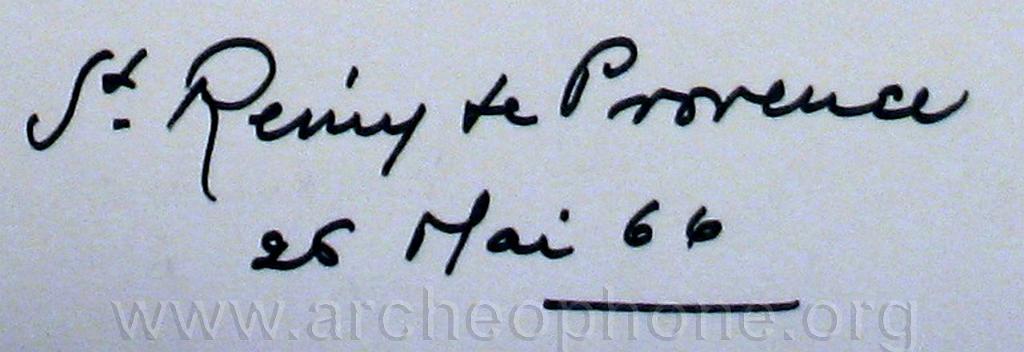 St. Remy de Provence
26 Mai 66
www.archeophone.org